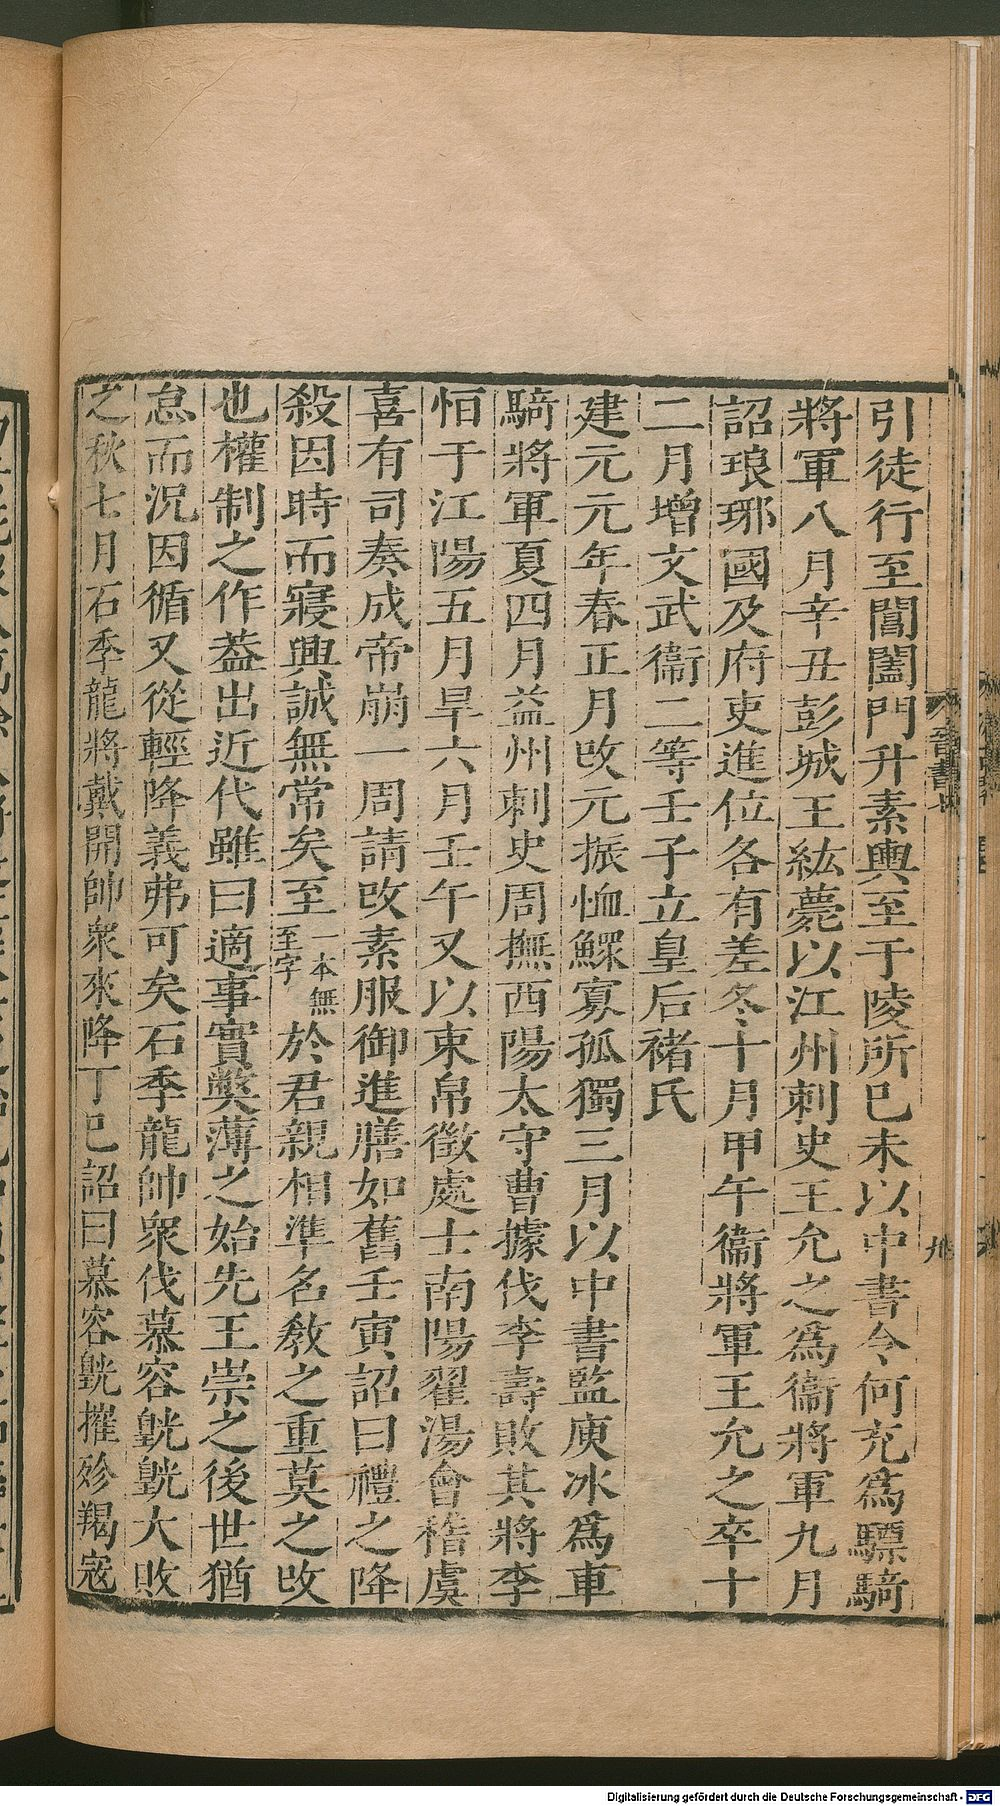 引徒行至閶闔門升素輿至于陵所己未以中書令何充爲驃騎
將軍八月辛丑彭城王紘薨以江州刺史王允之爲衞將軍九月
詔琅琊國及府吏進位各有差冬十月甲午衞將軍王允之卒十
二月增文武衞二等壬子立皇后褚氏
建元元年春正月改元振恤鰥寡孤獨三月以中書監庾冰爲車
騎將軍夏四月益州刺史周撫西陽太守曹據伐李壽敗其將李
恒于江陽五月旱六月壬午又以束帛徵處士南陽翟湯會稽虞
喜有司奏成帝崩一周請改素服御進膳如舊壬寅詔曰禮之降
殺因時而寢興誠無常矣至一本無至字於君親相準名教之重莫之改
也權制之作蓋出近代雖曰適事實獘薄之始先王崇之後世猶
怠而況因循又從輕降義弗可矣石季龍帥衆伐慕容皝皝大敗
之秋七月石季龍將戴開帥衆來降丁巳詔曰慕容皝摧殄羯寇
Digitalisierung gefördert durch die Deutsche Forschungsgemeinschaft - DFG